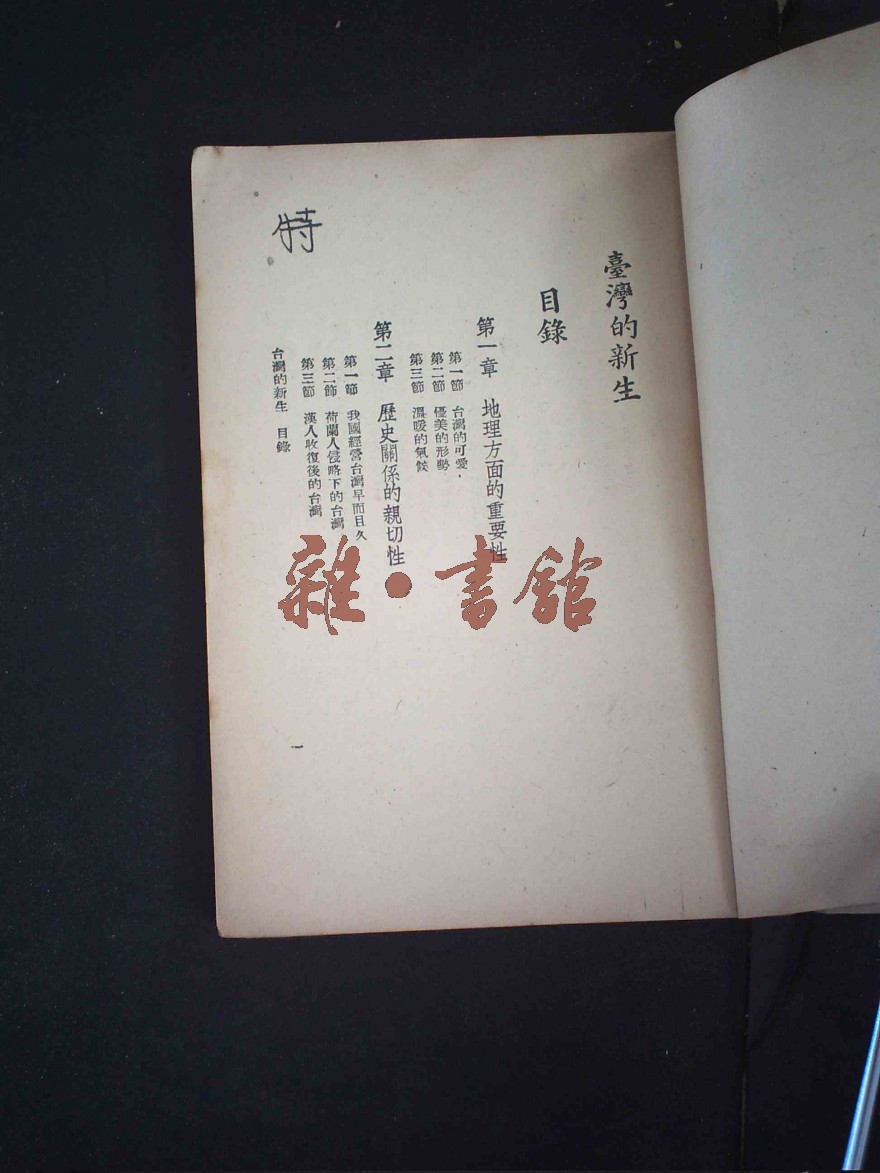 臺灣的新生
目錄
第一章 地理方面的重要性
第一節 台灣的可愛
第二節 優美的形勢
第三節 溫暖的氣候
第二章 歷史關係的親切性
第一節 我國經營台灣早而且久
第二節 荷蘭人侵略下的台灣
第三節 漢人收復後的台灣
台灣的新生 目錄
一
特
雜·書館